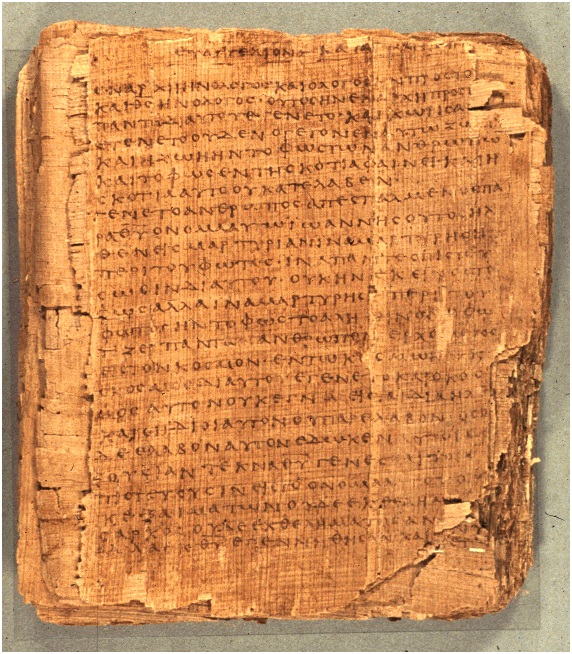 ΕΥΑΓΓΕΛΙΟΝ ΚΑΤΑ
ΕΝ ΑΡΧΗ ΗΝ Ο ΛΟΓΟΣ ΚΑΙ Ο ΛΟΓΟΣ ΗΝ ΠΡΟΣ ΤΟ
ΚΑΙ ΘΣ ΗΝ Ο ΛΟΓΟΣ · ΟΥΤΟΣ ΗΝ ΕΝ ΑΡΧΗ ΠΡΟΣ
ΠΑΝΤΑ ΔΙ ΑΥΤΟΥ ΕΓΕΝΕΤΟ · ΚΑΙ ΧΩΡΙΣ ΑΥ
ΕΓΕΝΕΤΟ ΟΥΔΕΝ Ο ΓΕΓΟΝΕΝ ΕΝ ΑΥΤΩ
ΚΑΙ Η ΖΩΗ ΗΝ ΤΟ ΦΩΣ ΤΩΝ ΑΝΘΡΩΠΩ
ΚΑΙ ΤΟ ΦΩΣ ΕΝ ΤΗ ΣΚΟΤΙΑ ΦΑΙΝΕΙ · ΚΑΙ Η
ΣΚΟΤΙΑ ΑΥΤΟ ΟΥ ΚΑΤΕΛΑΒΕΝ
ΕΓΕΝΕΤΟ ΑΝΘΡΩΠΟΣ ΑΠΕΣΤΑΛΜΕΝΟΣ ΠΑ
ΡΑ ΘΥ ΟΝΟΜΑ ΑΥΤΩ ΙΩΑΝΝΗΣ ΟΥΤΟΣ ΗΛ
ΘΕΝ ΕΙΣ ΜΑΡΤΥΡΙΑΝ ΙΝΑ ΜΑΡΤΥΡΗΣΗ
ΠΕΡΙ ΤΟΥ ΦΩΤΟΣ · ΙΝΑ ΠΑΝΤΕΣ ΠΙΣΤΕΥ
ΣΩΣΙΝ ΔΙ ΑΥΤΟΥ · ΟΥΚ ΗΝ ΕΚΕΙΝΟΣ ΤΟ
ΦΩΣ ΑΛΛΑ ΙΝΑ ΜΑΡΤΥΡΗΣΗ ΠΕΡΙ ΤΟΥ
ΦΩΤΟΣ · ΗΝ ΤΟ ΦΩΣ ΤΟ ΑΛΗΘΙΝΟΝ Ο ΦΩ
ΤΙΖΕΙ ΠΑΝΤΑ ΑΝΘΡΩΠΟΝ ΕΡΧΟΜΕΝΟΝ
ΕΙΣ ΤΟΝ ΚΟΣΜΟΝ · ΕΝ ΤΩ ΚΟΣΜΩ ΗΝ
ΚΑΙ Ο ΚΟΣΜΟΣ ΔΙ ΑΥΤΟΥ ΕΓΕΝΕΤΟ ΚΑΙ Ο ΚΟΣ
ΜΟΣ ΑΥΤΟΝ ΟΥΚ ΕΓΝΩ · ΕΙΣ ΤΑ ΙΔΙΑ ΗΛΘΕ
ΚΑΙ ΟΙ ΙΔΙΟΙ ΑΥΤΟΝ ΟΥ ΠΑΡΕΛΑΒΟΝ · ΟΣΟΙ
ΔΕ ΕΛΑΒΟΝ ΑΥΤΟΝ ΕΔΩΚΕΝ ΑΥΤΟΙΣ ΕΞ
ΟΥΣΙΑΝ ΤΕΚΝΑ ΘΥ ΓΕΝΕΣΘΑΙ ΤΟΙΣ
ΠΙΣΤΕΥΟΥΣΙΝ ΕΙΣ ΤΟ ΟΝΟΜΑ
ΕΞ ΑΙΜΑΤΩΝ ΟΥΔΕ ΕΚ ΘΕΛΗΜΑ
ΣΑΡΚΟΣ ΟΥΔΕ ΕΚ ΘΕΛΗΜΑΤΟΣ ΑΝ
ΑΛΛΑ ΕΚ ΘΥ ΕΓΕΝΝΗΘΗΣΑΝ ΚΑΙ